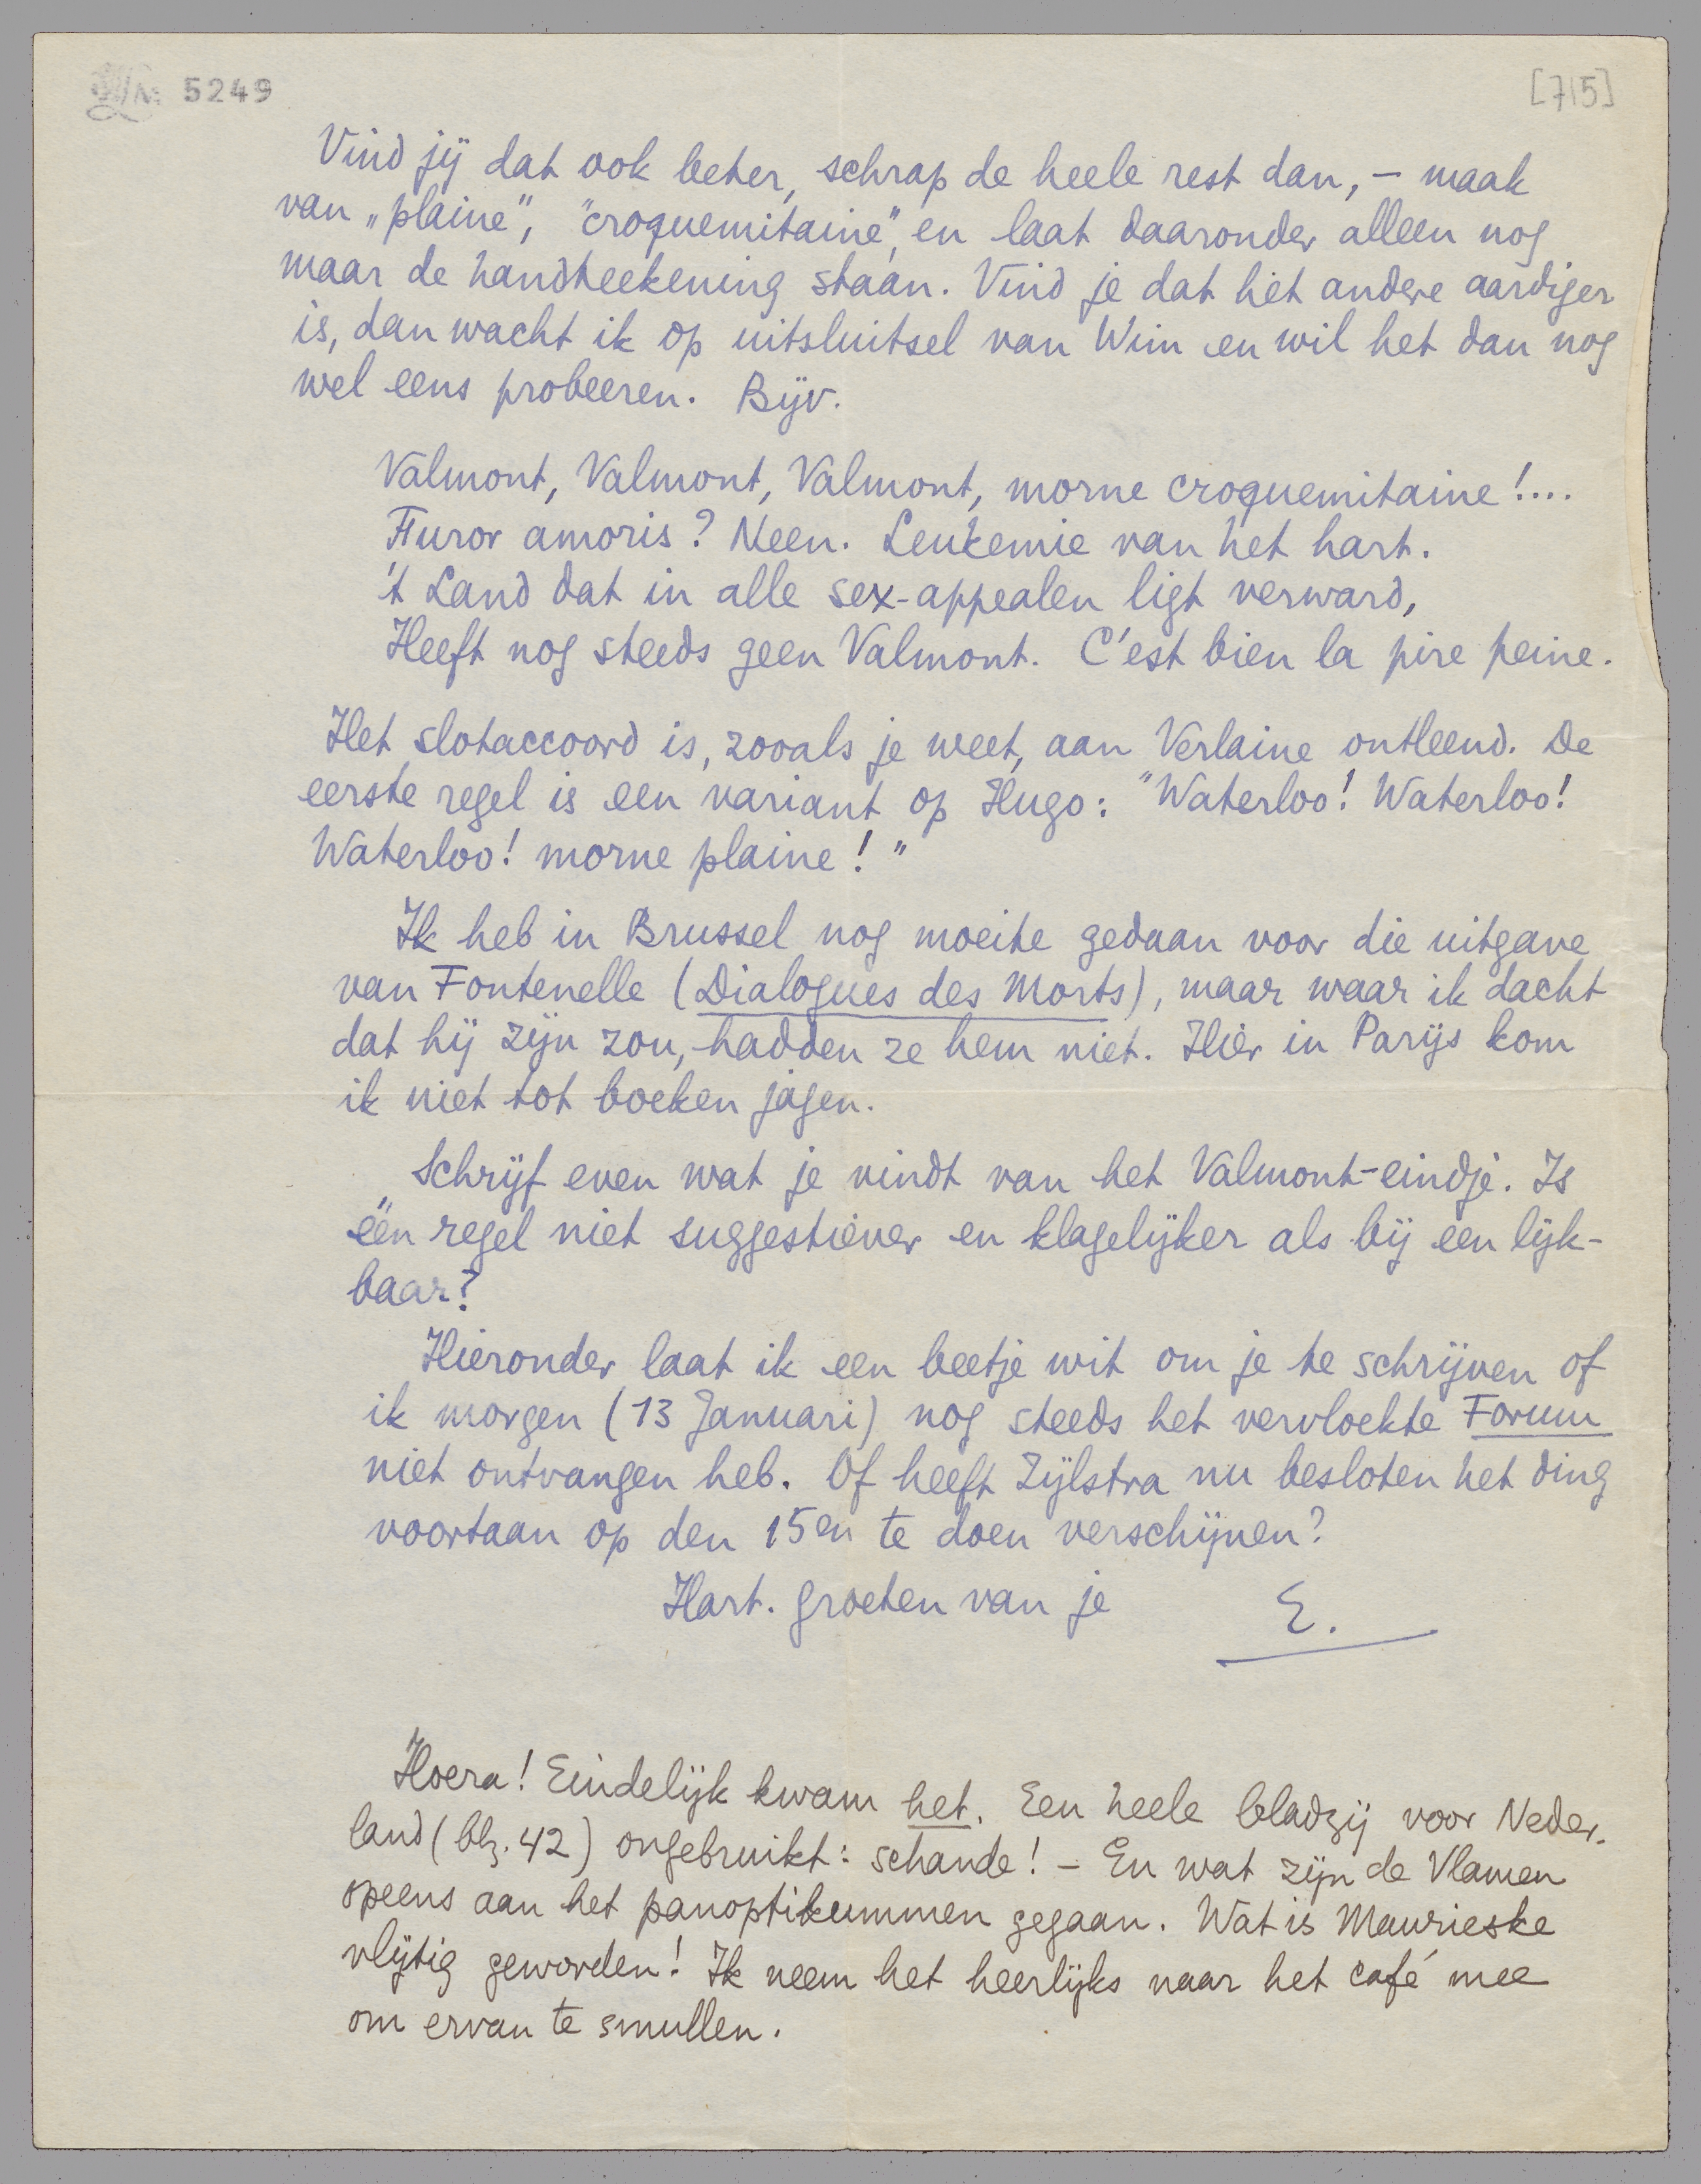 5249
[715]
Vind jij dat ook beter, schrap de heele rest dan, – maak
van „plaine”, "croquemitaine", en laat daaronder alleen nog
maar de handteekening staan. Vind je dat het andere aardiger
is, dan wacht ik op uitsluitsel van Wim en wil het dan nog
wel eens probeeren. Bijv.
Valmont, Valmont, Valmont, morne croquemitaine!....
Furor amoris? Neen. Leukemie van het hart.
't Land dat in alle sex-appealen ligt verward,
Heeft nog steeds geen Valmont. C'est bien la pire peine.
Het slotaccoord is, zooals je weet, aan Verlaine ontleend. De
eerste regel is een variant op Hugo: "Waterloo! Waterloo!
Waterloo! morne plaine!"
Ik heb in Brussel nog moeite gedaan voor die uitgave
van Fontenelle (Dialogues des Morts), maar waar ik dacht
dat hij zijn zou, hadden ze hem niet. Hier in Parijs kom
ik niet tot boeken jagen.
Schrijf even wat je vindt van het Valmont-eindje. Is
één regel niet suggestiever en klagelijker als bij een lijk-
baar?
Hieronder laat ik een beetje wit om je te schrijven of
ik morgen (13 Januari) nog steeds het vervloekte Forum
niet ontvangen heb. Of heeft Zijlstra nu besloten het ding
voortaan op den 15en te doen verschijnen?
Hart. groeten van je E.
Hoera! Eindelijk kwam het. Een heele bladzij voor Neder-
land (blz. 42) ongebruikt: schande! – En wat zijn de Vlamen
opeens aan het panoptikummen gegaan. Wat is Maurieske
vlijtig geworden! Ik neem het heerlijks naar het café mee
om ervan te smullen.